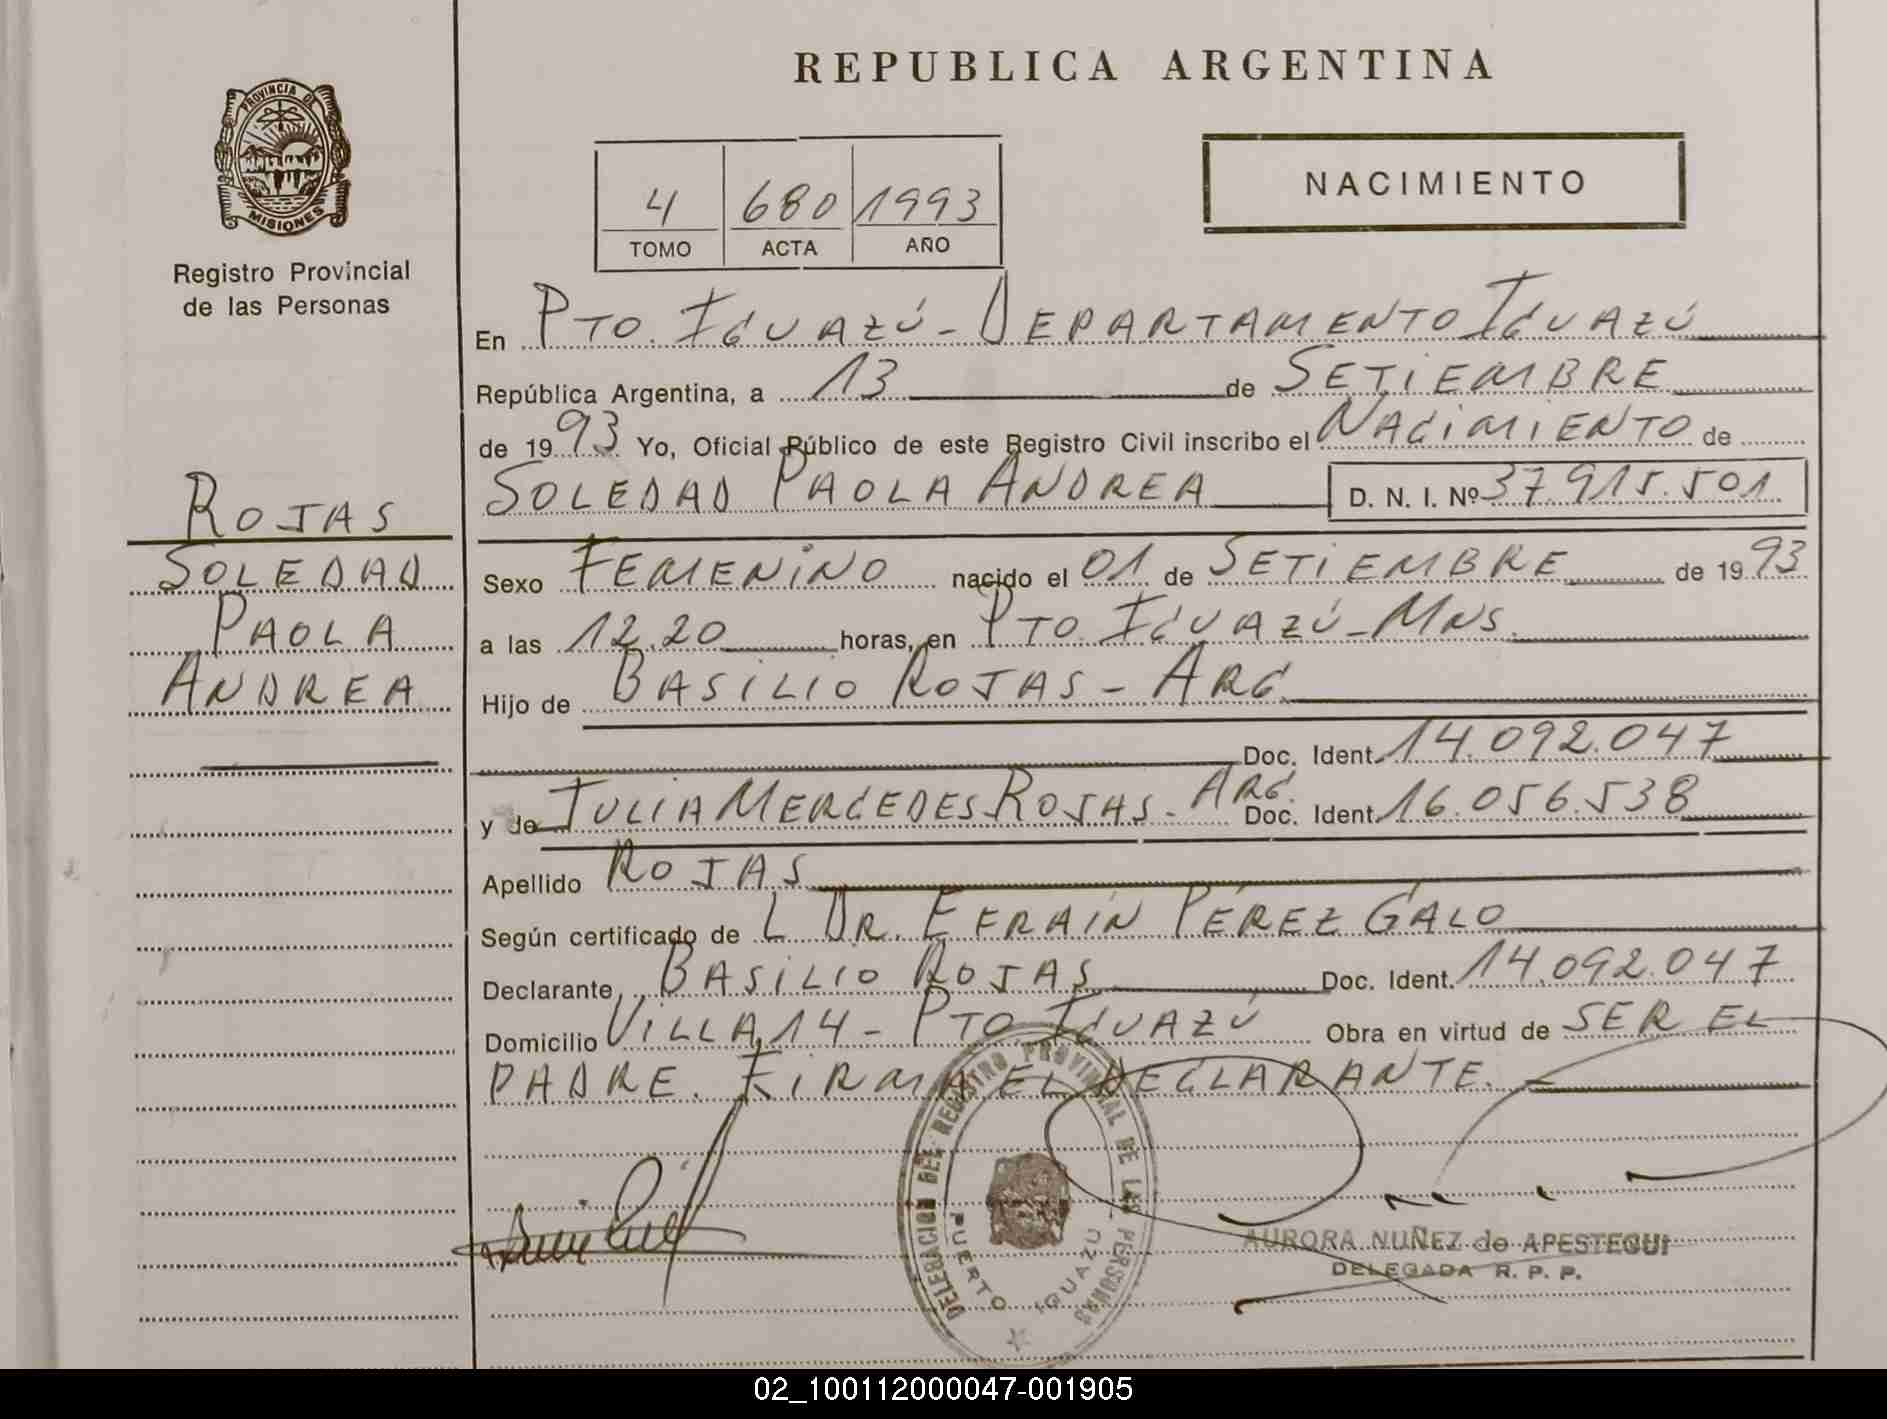 REPUBLICA ARGENTINA
PROVINCIA DE
MISIONES
Registro Provincial
de las Personas
4 680 1993
TOMO ACTA AÑO
NACIMIENTO
En PTO. IGUAZÚ - DEPARTAMENTO IGUAZÚ
República Argentina, a 13 de SETIEMBRE
de 1993 Yo, Oficial Público de este Registro Civil inscribo el NACIMIENTO de
SOLEDAD PAOLA ANDREA D. N. I. Nº 37.915.501
ROJAS
SOLEDAD
PAOLA
ANDREA
Sexo FEMENINO nacido el 01 de SETIEMBRE de 1993
a las 12.20 horas, en PTO. IGUAZÚ - MNS.
Hijo de BASILIO ROJAS - ARG.
Doc. Ident. 14.092.047
y de JULIA MERCEDES ROJAS - ARG. Doc. Ident. 16.056.538
Apellido ROJAS
Según certificado de L DR. EFRAÍN PÉREZ GALO
Declarante BASILIO ROJAS Doc. Ident. 14.092.047
Domicilio VILLA 14 - PTO IGUAZÚ Obra en virtud de SER EL
PADRE. FIRMA EL DECLARANTE.
DELEGACION DEL REGISTRO PROVINCIAL DE LAS PERSONAS
PUERTO IGUAZU
AURORA NUÑEZ de APESTEGUI
DELEGADA R. P. P.
02_100112000047-001905